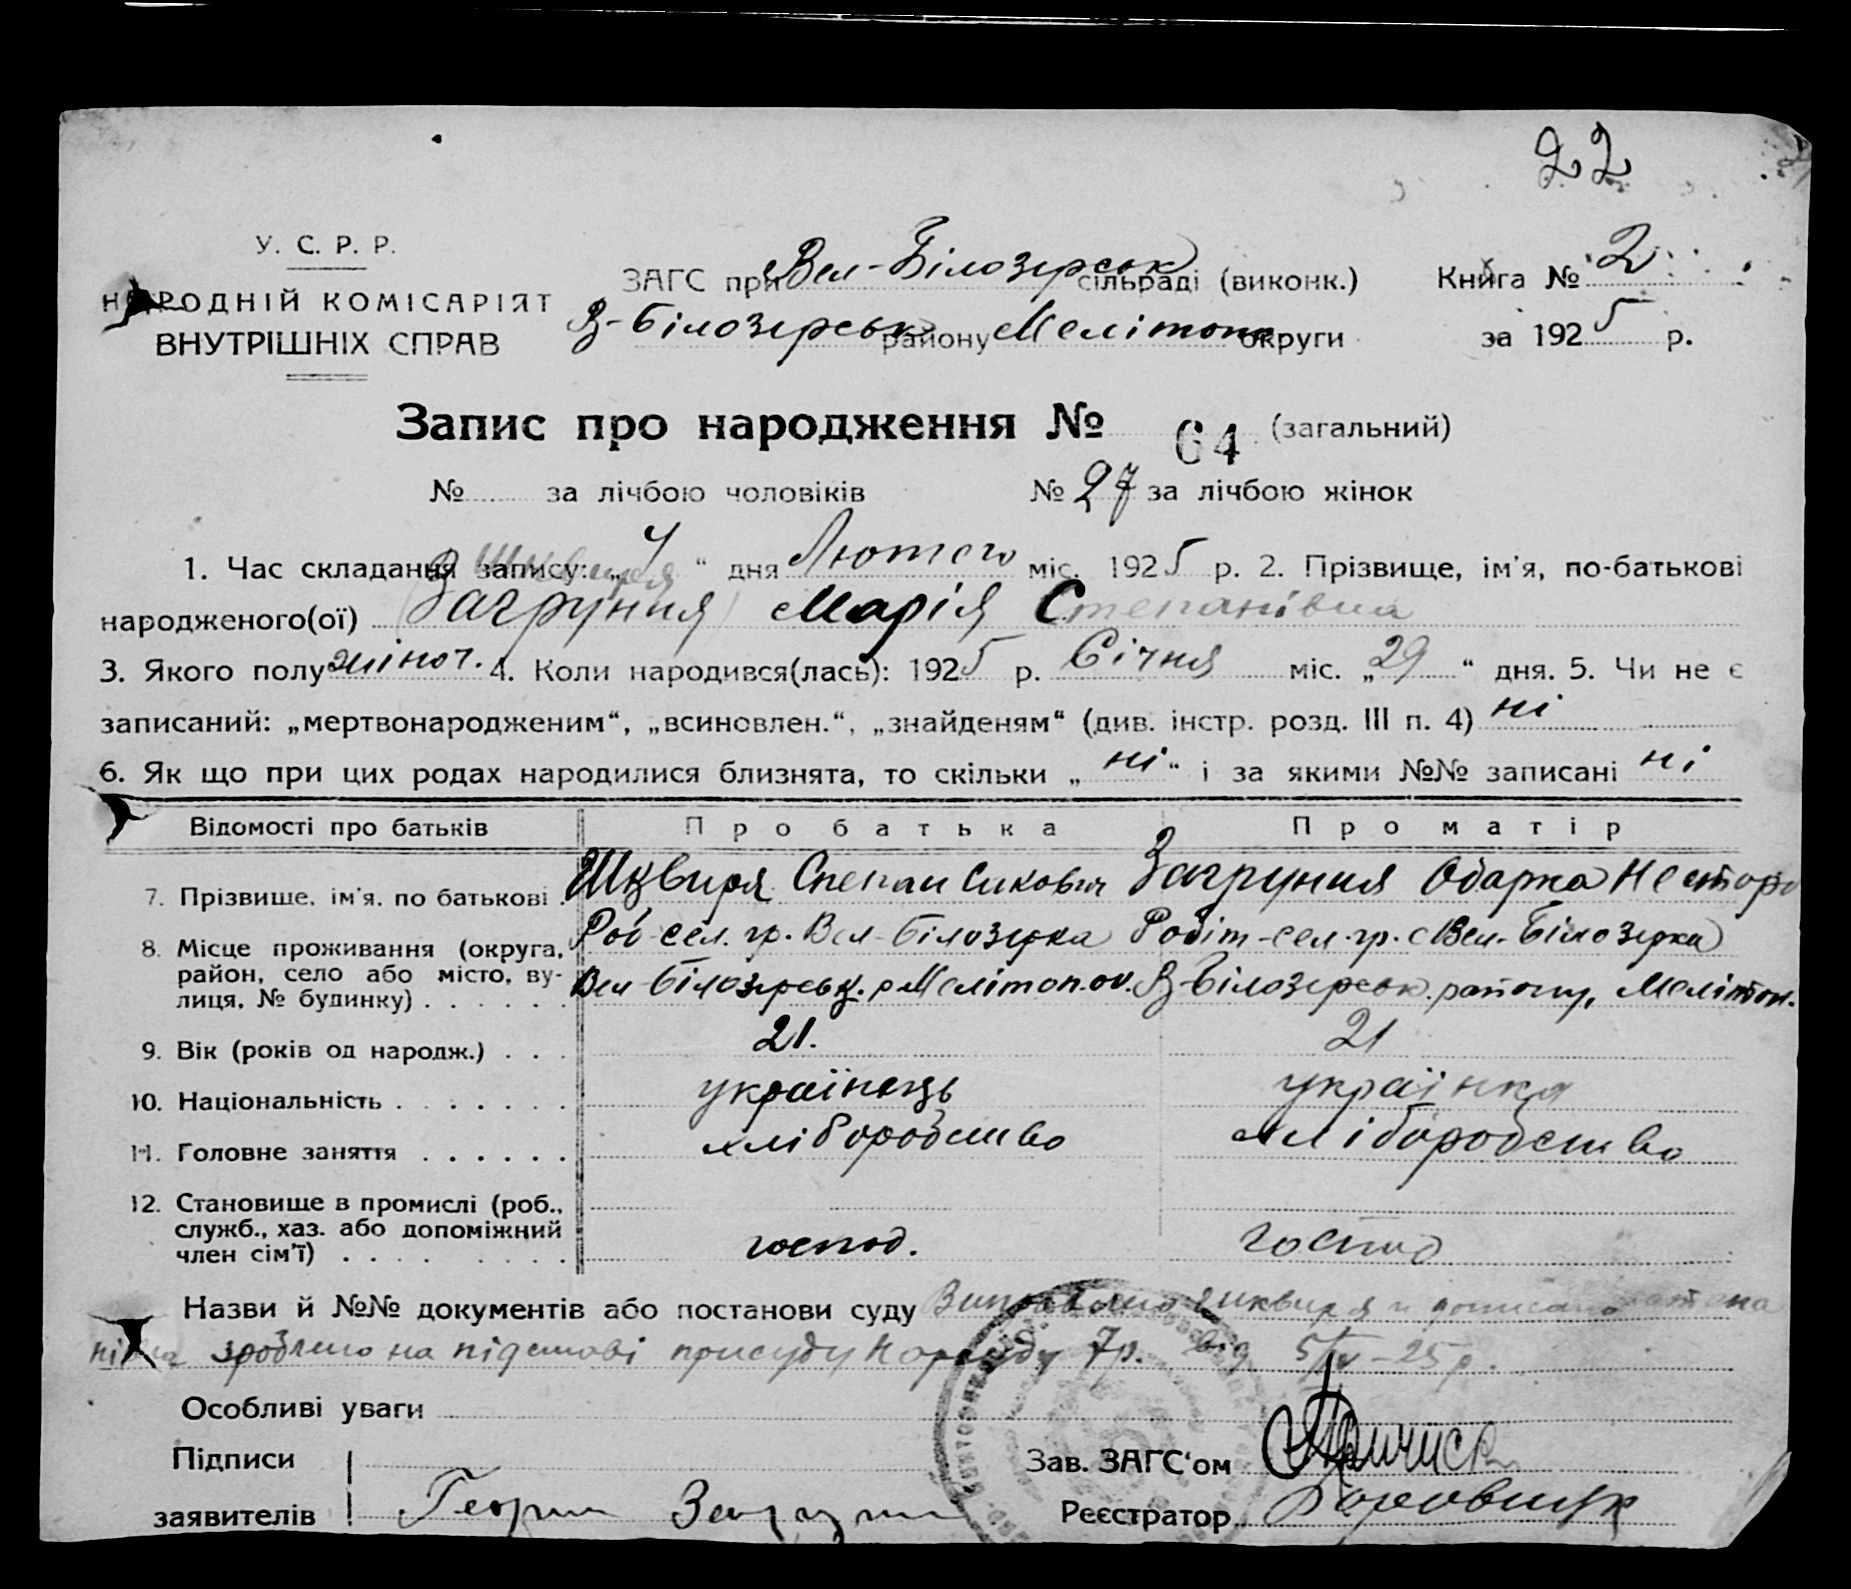 22
У. С. Р. Р.
НАРОДНІЙ КОМІСАРІЯТ
ВНУТРІШНІХ СПРАВ
ЗАГС при Вел-Білозерськ сільраді (виконк.)
В-Білозерськ району Мелітоп округи
Книга № 2
за 1925 р.
Запис про народження № 64 (загальний)
№ за лічбою чоловіків № 27 за лічбою жінок
Шквиря
1. Час складання запису: „4“ дня Лютого міс. 1925 р. 2. Прізвище, ім'я, по-батькові
народженого(ої) (Загруння) Марія Степанівна
3. Якого полу жіноч. 4. Коли народився(лась): 1925 р. Січня міс. „29“ дня. 5. Чи не є
записаний: „мертвонародженим“, „всиновлен.“, „знайденям“ (див. інстр. розд. III п. 4) ні
6. Як що при цих родах народилися близнята, то скільки „ні“ і за якими №№ записані ні
Відомості про батьків Про батька Про матір
7. Прізвище, ім'я, по батькові. Шквиря Степан Загруння Одарка Нестор
8. Місце проживання (округа, район, село або місто, вулиця, № будинку) Роб-сел. гр. Вел-Білозерка Робіт-сел. гр. с Вел-Білозерка
Вел-Білозерськ. р Мелітоп. ок. В-Білозерськ. району, Мелітоп.
9. Вік (років од народж.) 21. 21
10. Національність українець українка
11. Головне заняття хліборобство хліборобство
12. Становище в промислі (роб., служб., хаз. або допоміжний член сім'ї) господ. господ
Назви й №№ документів або постанови суду Виправлено Шквиря и дописано
нівна зроблено на підставі присуду Нарсуду 7р. від 5/IV-25 р.
Особливі уваги
Підписи
заявителів Георги
Зав. ЗАГС'ом
Реєстратор